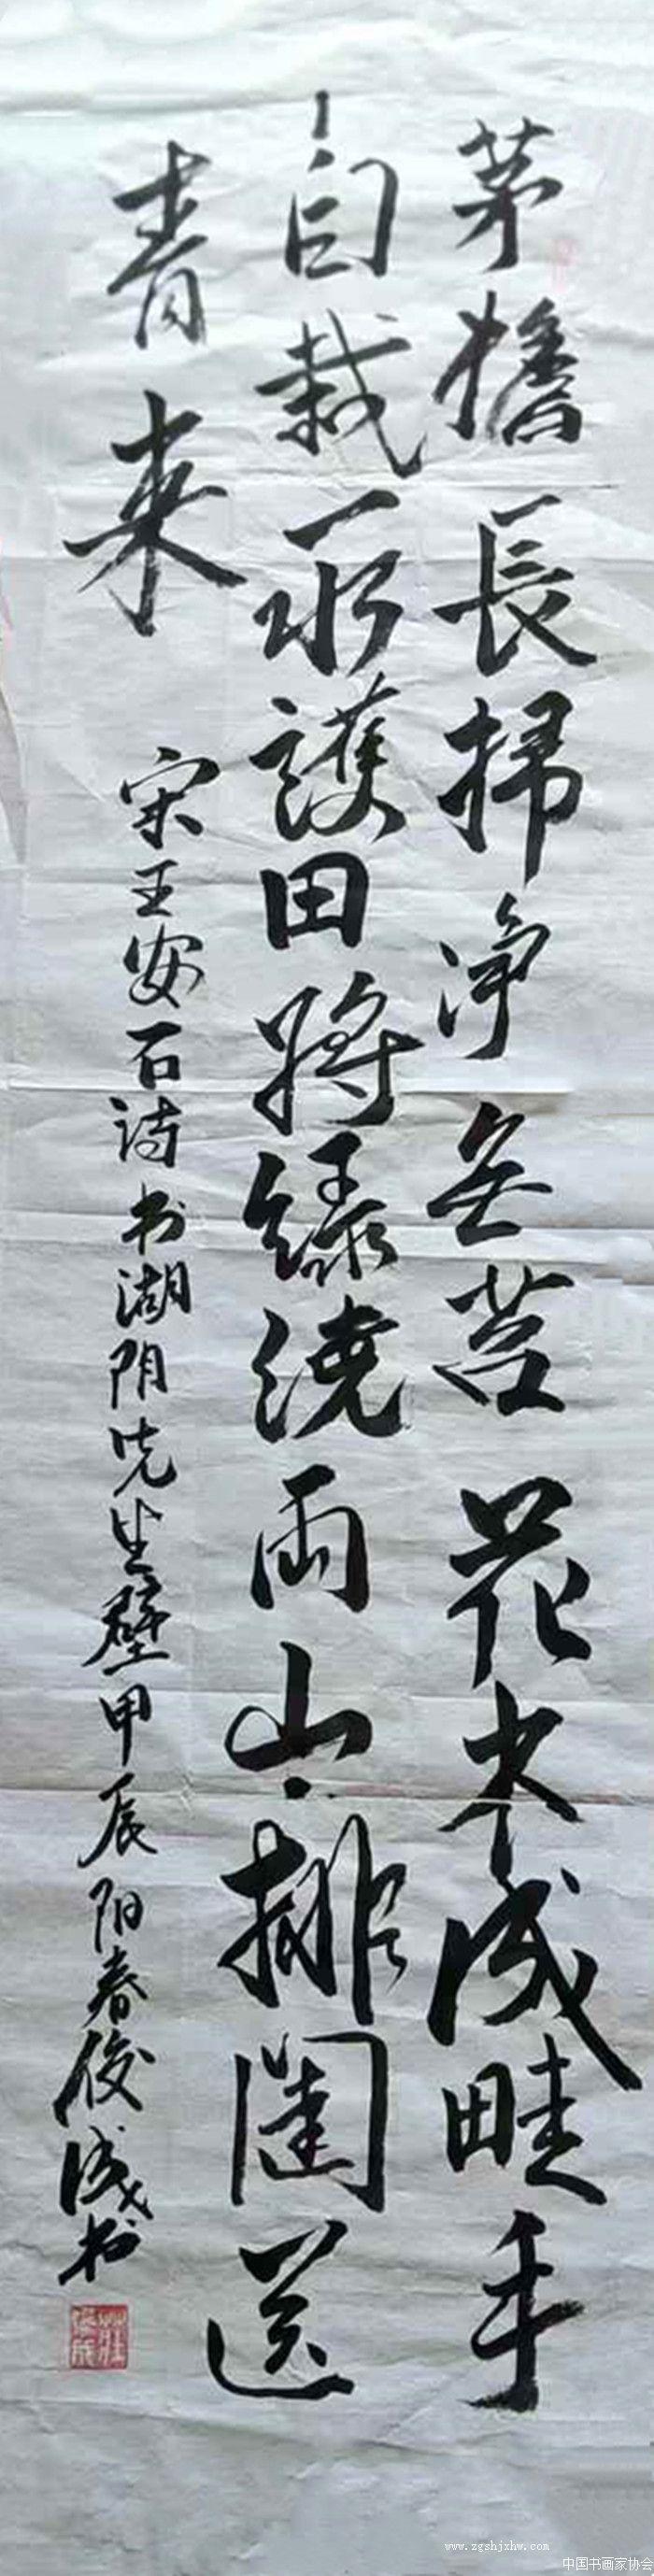 茅檐長掃淨無苔花木成畦手
自栽一水護田將緑繞兩山排闥送
青来
宋王安石詩书湖阴先生壁甲辰阳春俊成书
www.zgshjxhw.com
中国书画家协会